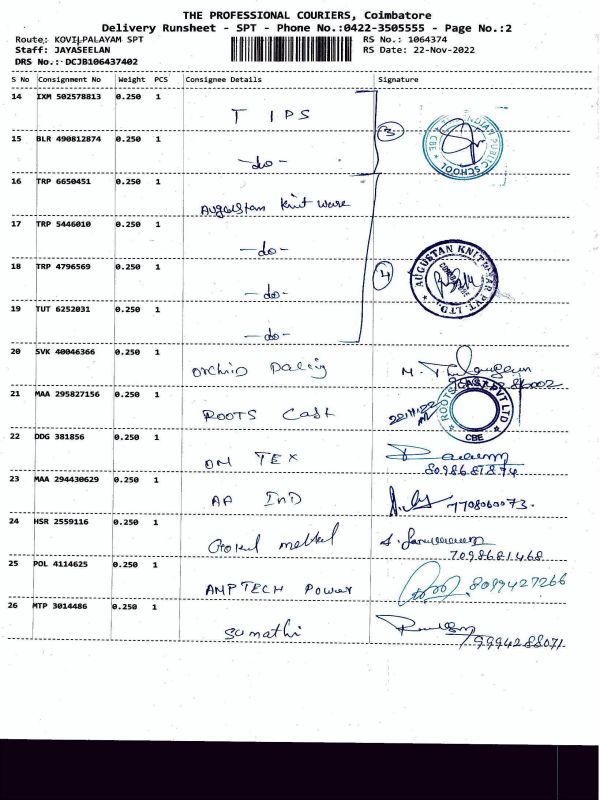 THE PROFESSIONAL COURIERS, Coimbatore
Delivery Runsheet - SPT - Phone No.:0422-3505555 - Page No.:2
Route: KOVILPALAYAM SPT RS No.: 1064374
Staff: JAYASEELAN RS Date: 22-Nov-2022
DRS No.: DCJB106437402
S No Consignment No Weight PCS Consignee Details Signature
14 IXM 502578813 0.250 1 T IPS
3
INDIAN PUBLIC SCHOOL * CBE *
15 BLR 490812874 0.250 1 -do-
16 TRP 6650451 0.250 1 Augustan Knit Ware
17 TRP 5446010 0.250 1 -do-
18 TRP 4796569 0.250 1 -do-
4
AUGUSTAN KNITWEAR PVT. LTD.
19 TUT 6252031 0.250 1 -do-
20 SVK 40046366 0.250 1 Orchid
21 MAA 295827156 0.250 1 ROOTS Cast 22/11/22
ROOTS CAST PVT LTD * CBE *
22 DDG 381856 0.250 1 OM TEX
8098687874
23 MAA 294430629 0.250 1 AA IND 7708060073.
24 HSR 2559116 0.250 1 Gokul metal
7098681468
25 POL 4114625 0.250 1 AMPTECH Power 8099427266
26 MTP 3014486 0.250 1 Sumathi
9994288071